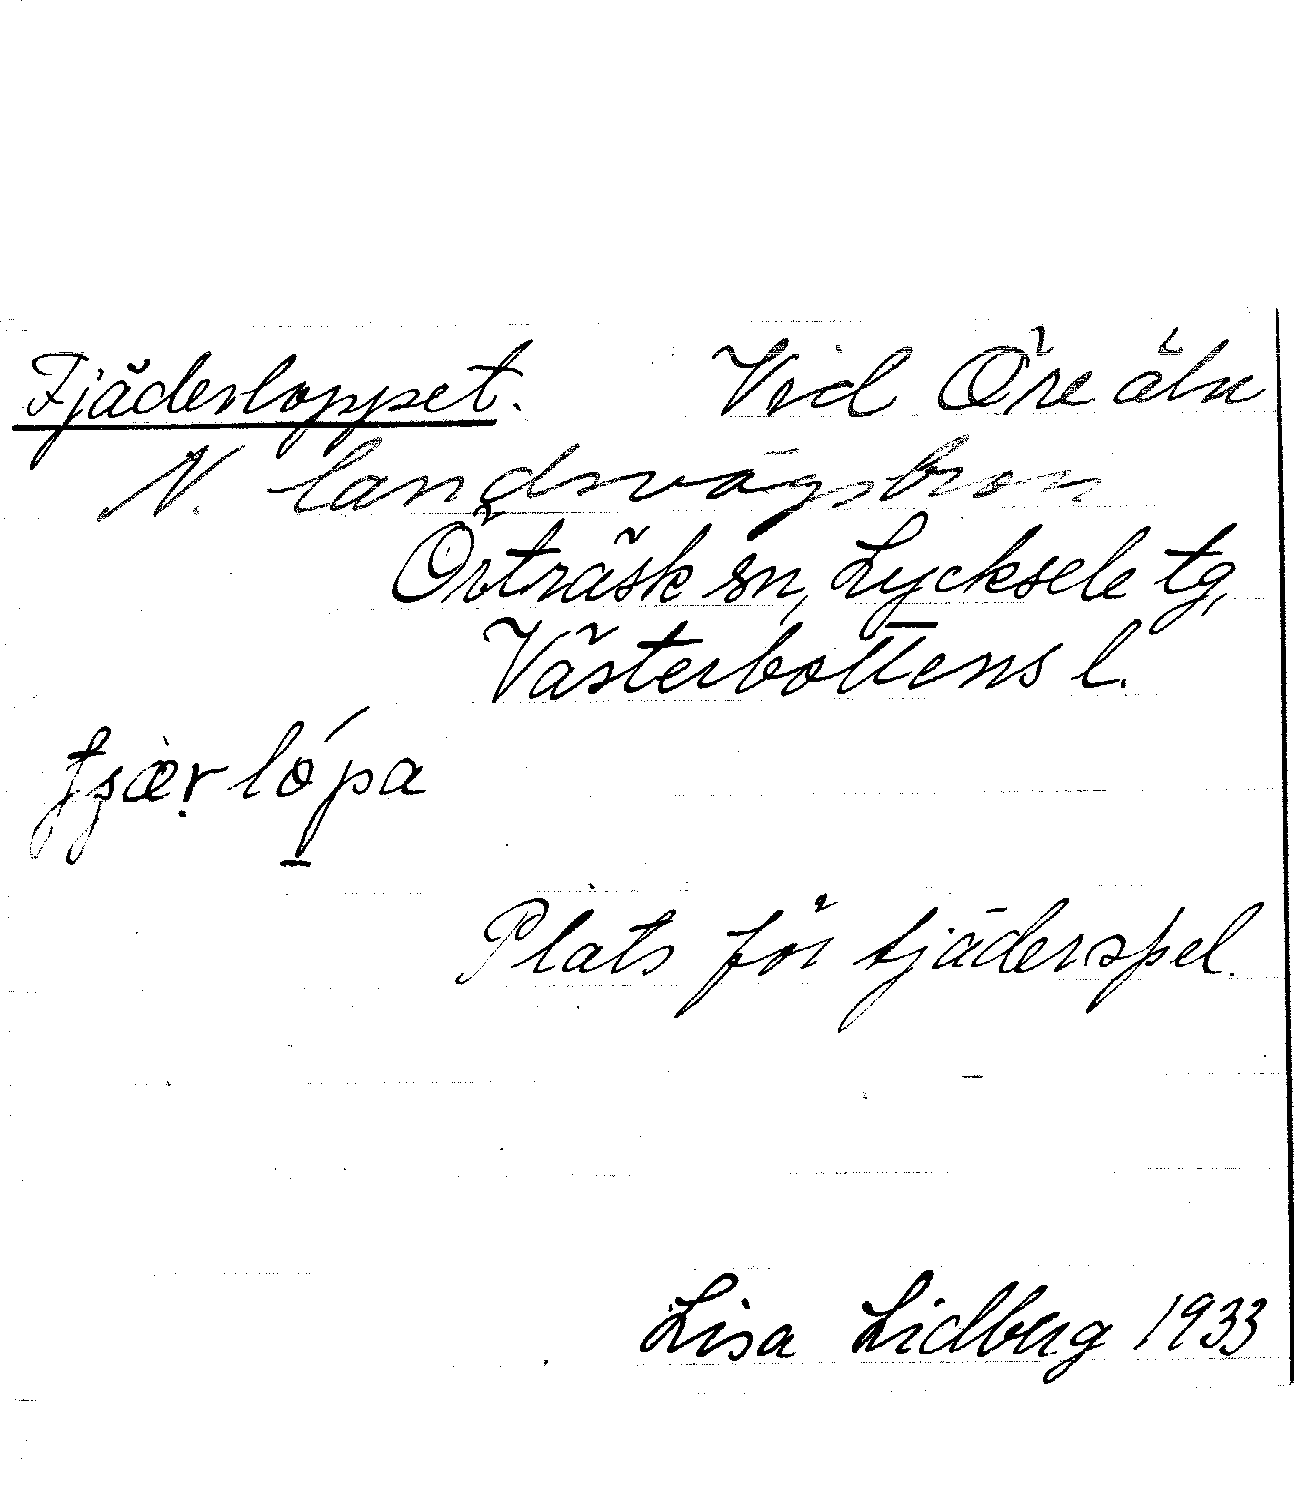 Tjäderloppet. Vid Öre älv
N. landsvägsbron
Örträsk sn, Lycksele tg,
Västerbottens l.
Plats för tjäderspel.
Lisa Lidberg 1933